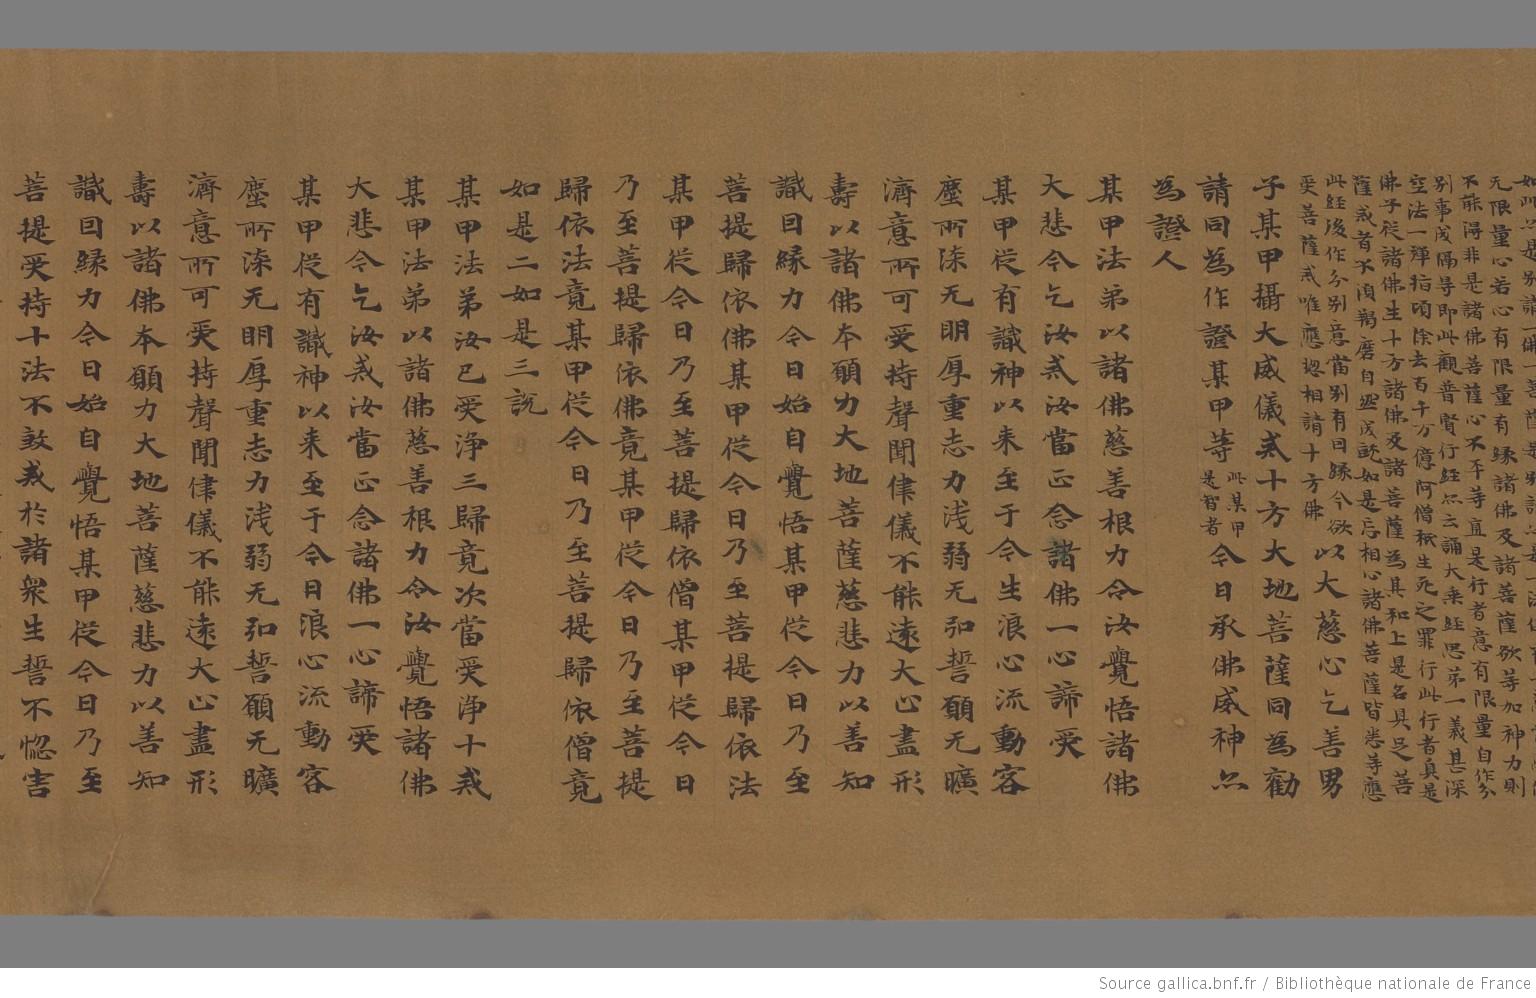 无限量心若心有限量有縁諸佛及諸菩薩欲等加神力則
不能得非是諸佛菩薩心不平等直是行者意有限量自作分
別事成隔导即此觀普賢行經亦云誦大乗經思第一義甚深
空法一弹指頃除去百千万億阿僧秖生死之罪行此行者真是
佛子從諸佛生十方諸佛及諸菩薩為其和上是名具足菩
薩戒者不湏羯磨自然成就如是忘相心諸佛菩薩皆悉等應
此經後作分别意當别有因縁今欲
受菩薩戒唯應揔相請十方佛
以大慈心乞善男
子某甲攝大威儀戒十方大地菩薩同為勸
請同為作證某甲等此某甲是智者今日承佛威神亦
為證人
某甲法弟以諸佛慈善根力令汝覺悟諸佛
大悲今乞汝戒汝當正念諸佛一心諦受
某甲從有識神以来至于今生浪心流動容
塵所渿无明厚重志力浅弱无弘誓願无曠
濟意所可受持聲聞律儀不能遠大心盡形
壽以諸佛本願力大地菩薩慈悲力以善知
識因縁力今日始自覺悟某甲從今日乃至
菩提歸依佛某甲從今日乃至菩提歸依法
某甲從今日乃至菩提歸依僧某甲從今日
乃至菩提歸依佛竟某甲從今日乃至菩提
歸依法竟某甲從今日乃至菩提歸依僧竟
如是二如是三說
某甲法弟汝已受浄三歸竟次當受浄十戒
某甲法弟以諸佛慈善根力令汝覺悟諸佛
大悲今乞汝戒汝當正念諸佛一心諦受
某甲從有識神以来至于今日浪心流動容
塵所渿无明厚重志力浅弱无弘誓願无曠
濟意所可受持聲聞律儀不能遠大心盡形
壽以諸佛本願力大地菩薩慈悲力以善知
識因縁力今日始自覺悟某甲從今日乃至
菩提受持十法不敎戒於諸衆生誓不惱害
Source gallica.bnf.fr / Bibliothèque nationale de France